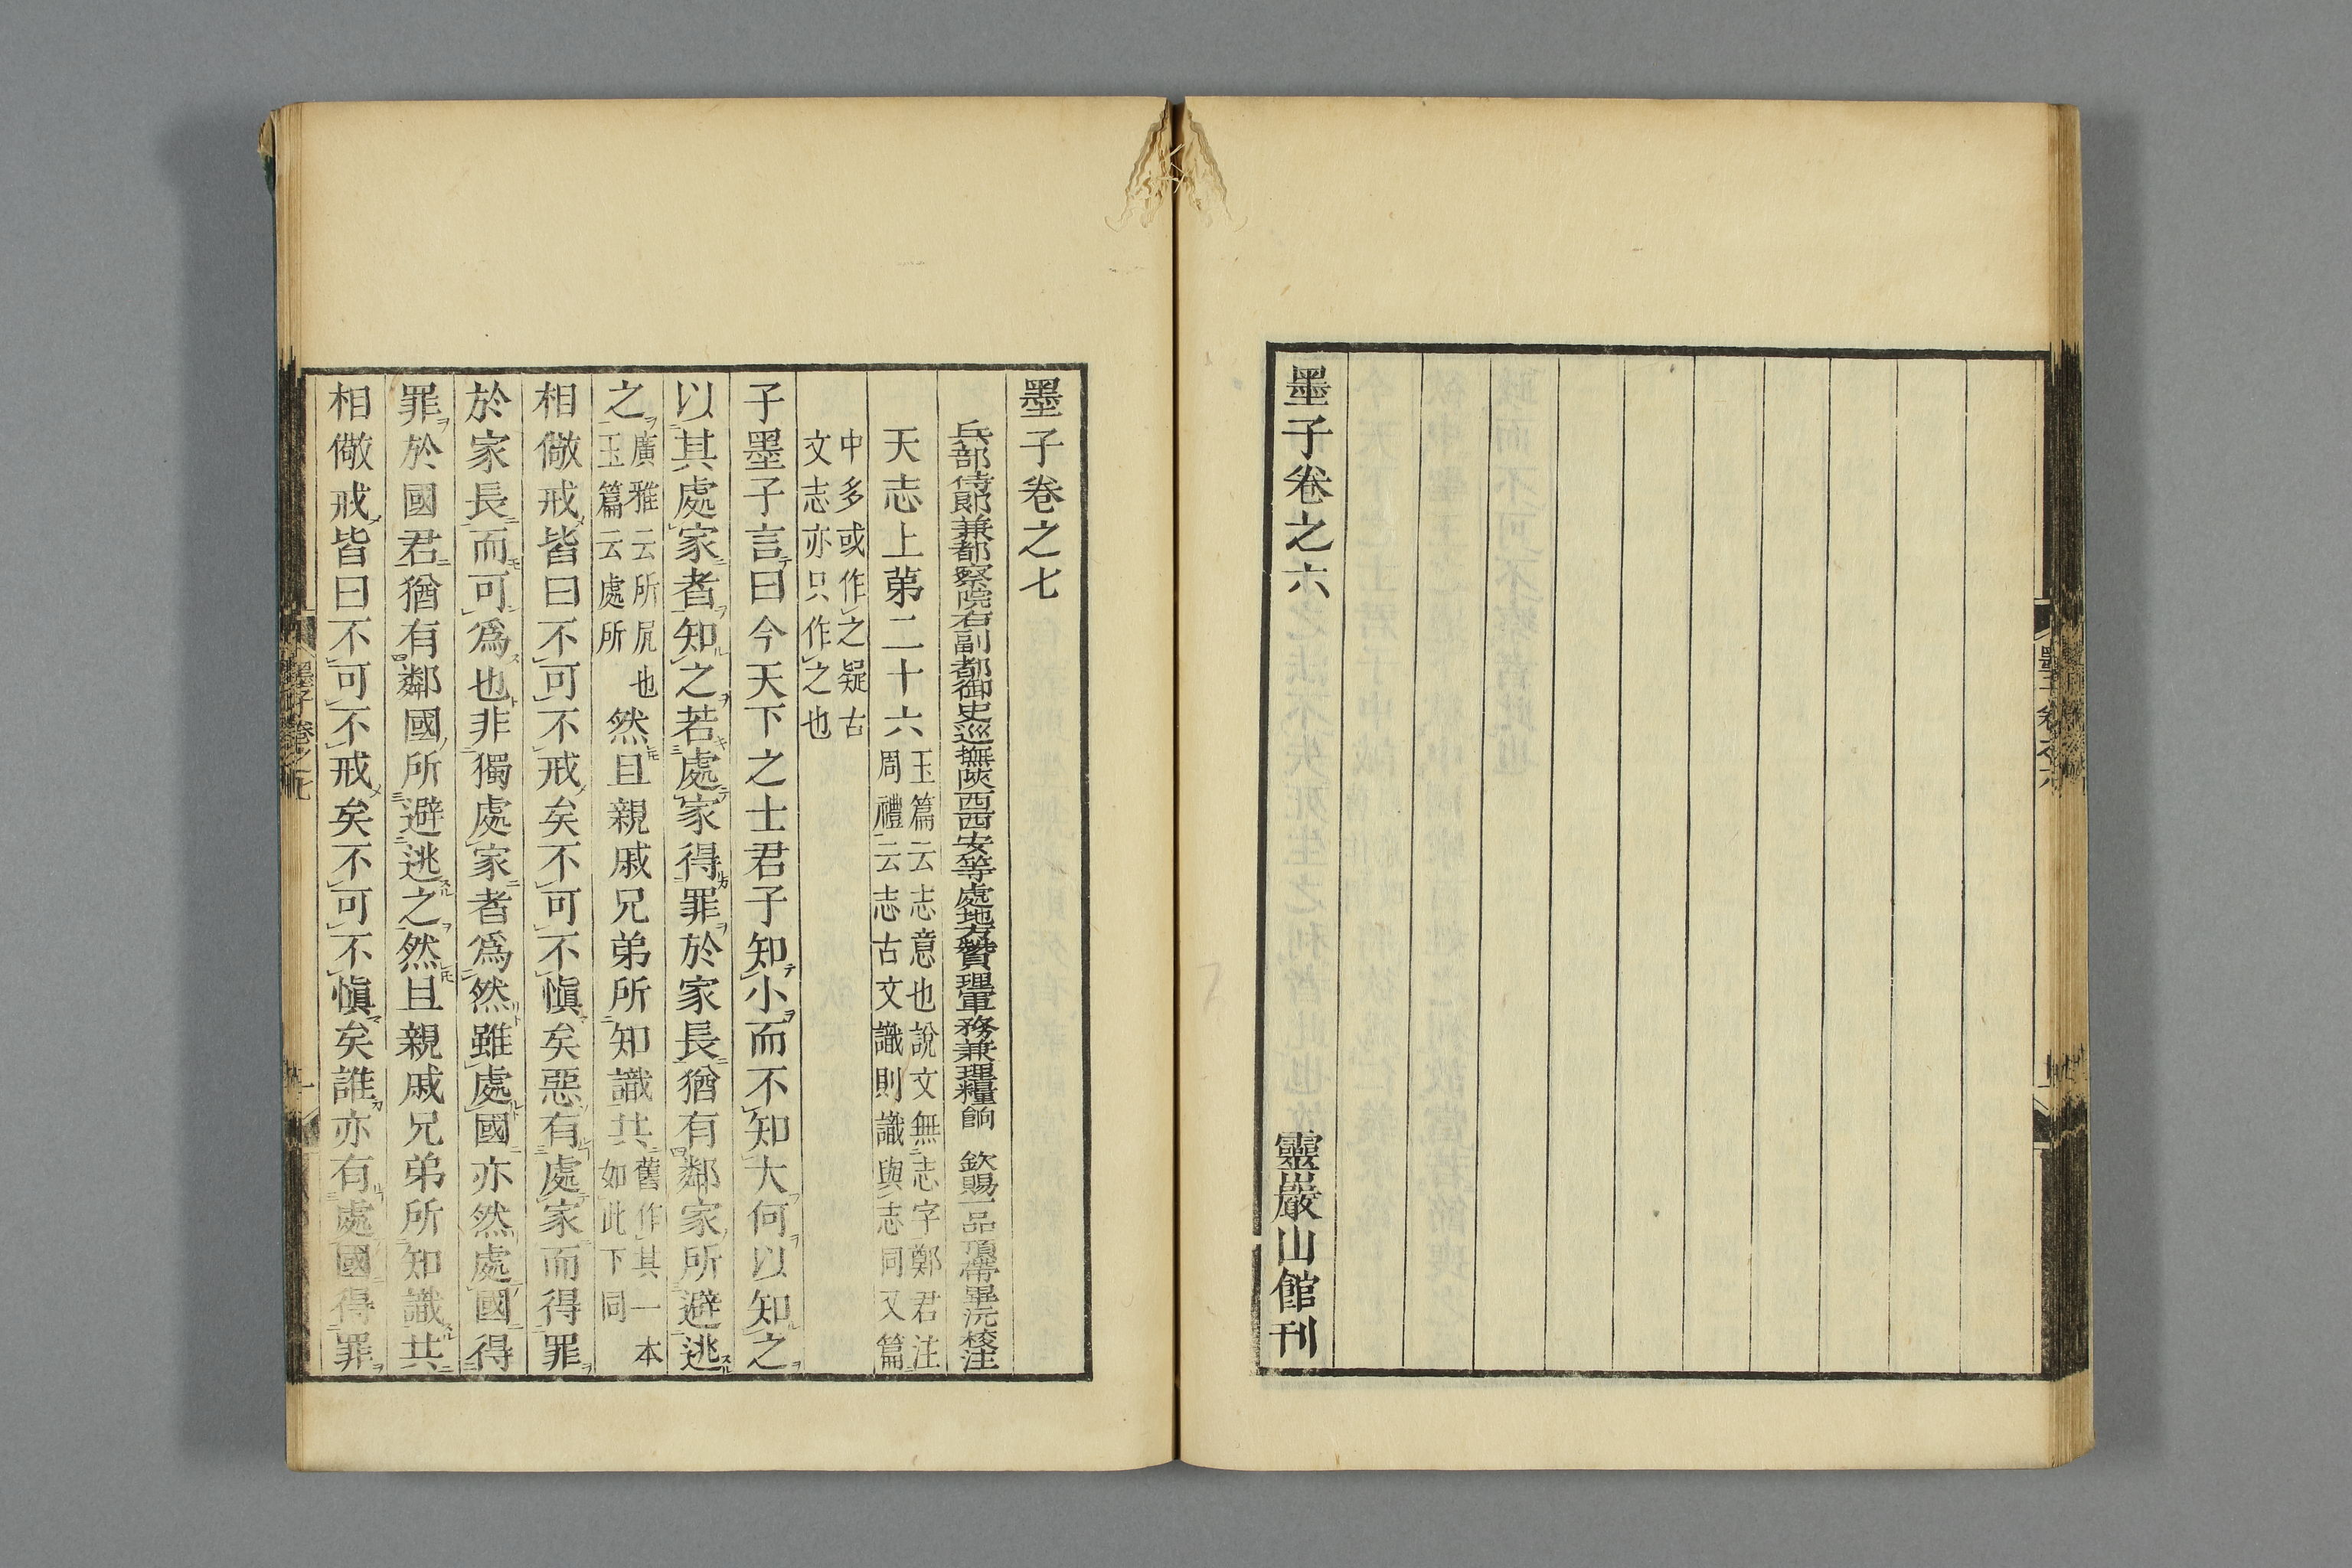 墨子卷之六
靈巖山館刊
墨子卷之七
兵部侍郎兼都察院右副都御史巡撫陝西西安等處地方贊理軍務兼理糧餉 欽賜一品頂帶畢沅校注
天志上第二十六
玉篇云志意也說文無志字鄭君注
周禮云志古文識則識與志同又篇
中多或作之疑古
文志亦只作之也
子墨子言曰今天下之士君子知小而不知大何以知之
以其處家者知之若處家得罪於家長猶有鄰家所避逃
之
廣雅云所尻也
玉篇云處所
然且親戚兄弟所知識共
舊作其一本
如此下同
相儆戒皆曰不可不戒矣不可不愼矣惡有處家而得罪
於家長而可爲也非獨處家者爲然雖處國亦然處國得
罪於國君猶有鄰國所避逃之然且親戚兄弟所知識共
相儆戒皆曰不可不戒矣不可不愼矣誰亦有處國得罪